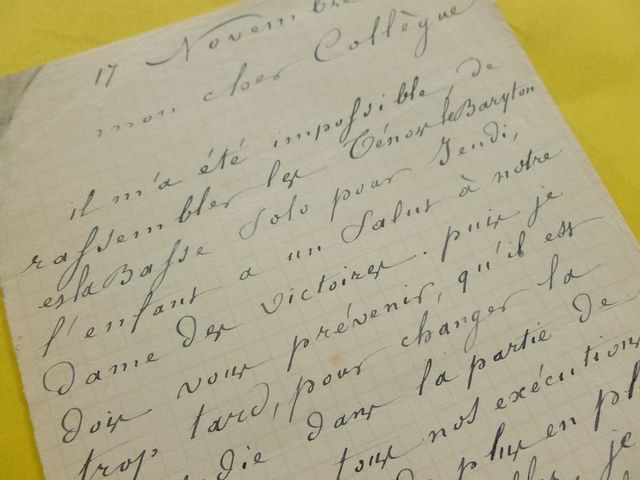 17 Novembre
mon cher Collègue
il m'a été impossible, de
rassembler les Ténor le Baryton
et la Basse Solo pour Jeudi,
l'enfant a un Salut à notre
Dame des Victoires. puis je
dois vous prévenir, qu'il est
trop tard, pour changer la
die dans la partie de
tous nos exécutions
plus en pl
je